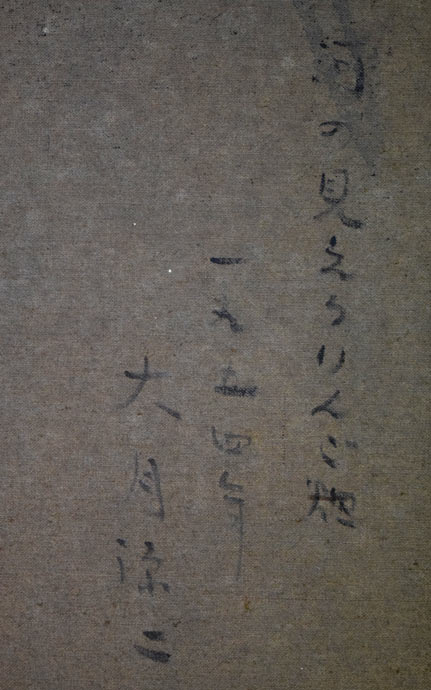 河の見えるりんご畑
一九五四年
大月源二